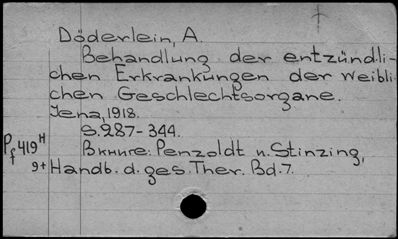 Döderlein, A.
Behandlung der entzündli-
chen Erkrankungen der weibli-
chen Geschlechtsorgane.
Jena, 1918.
S. 287-344.
Pf 419 H
В книге: Penzoldt u. Stinzing,
9+ Handb. d. ges. Ther. Bd. 7.